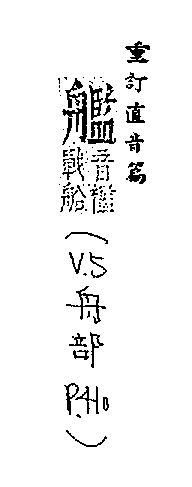 重訂直音篇
艦音檻戰船
(V.5舟部P.410)